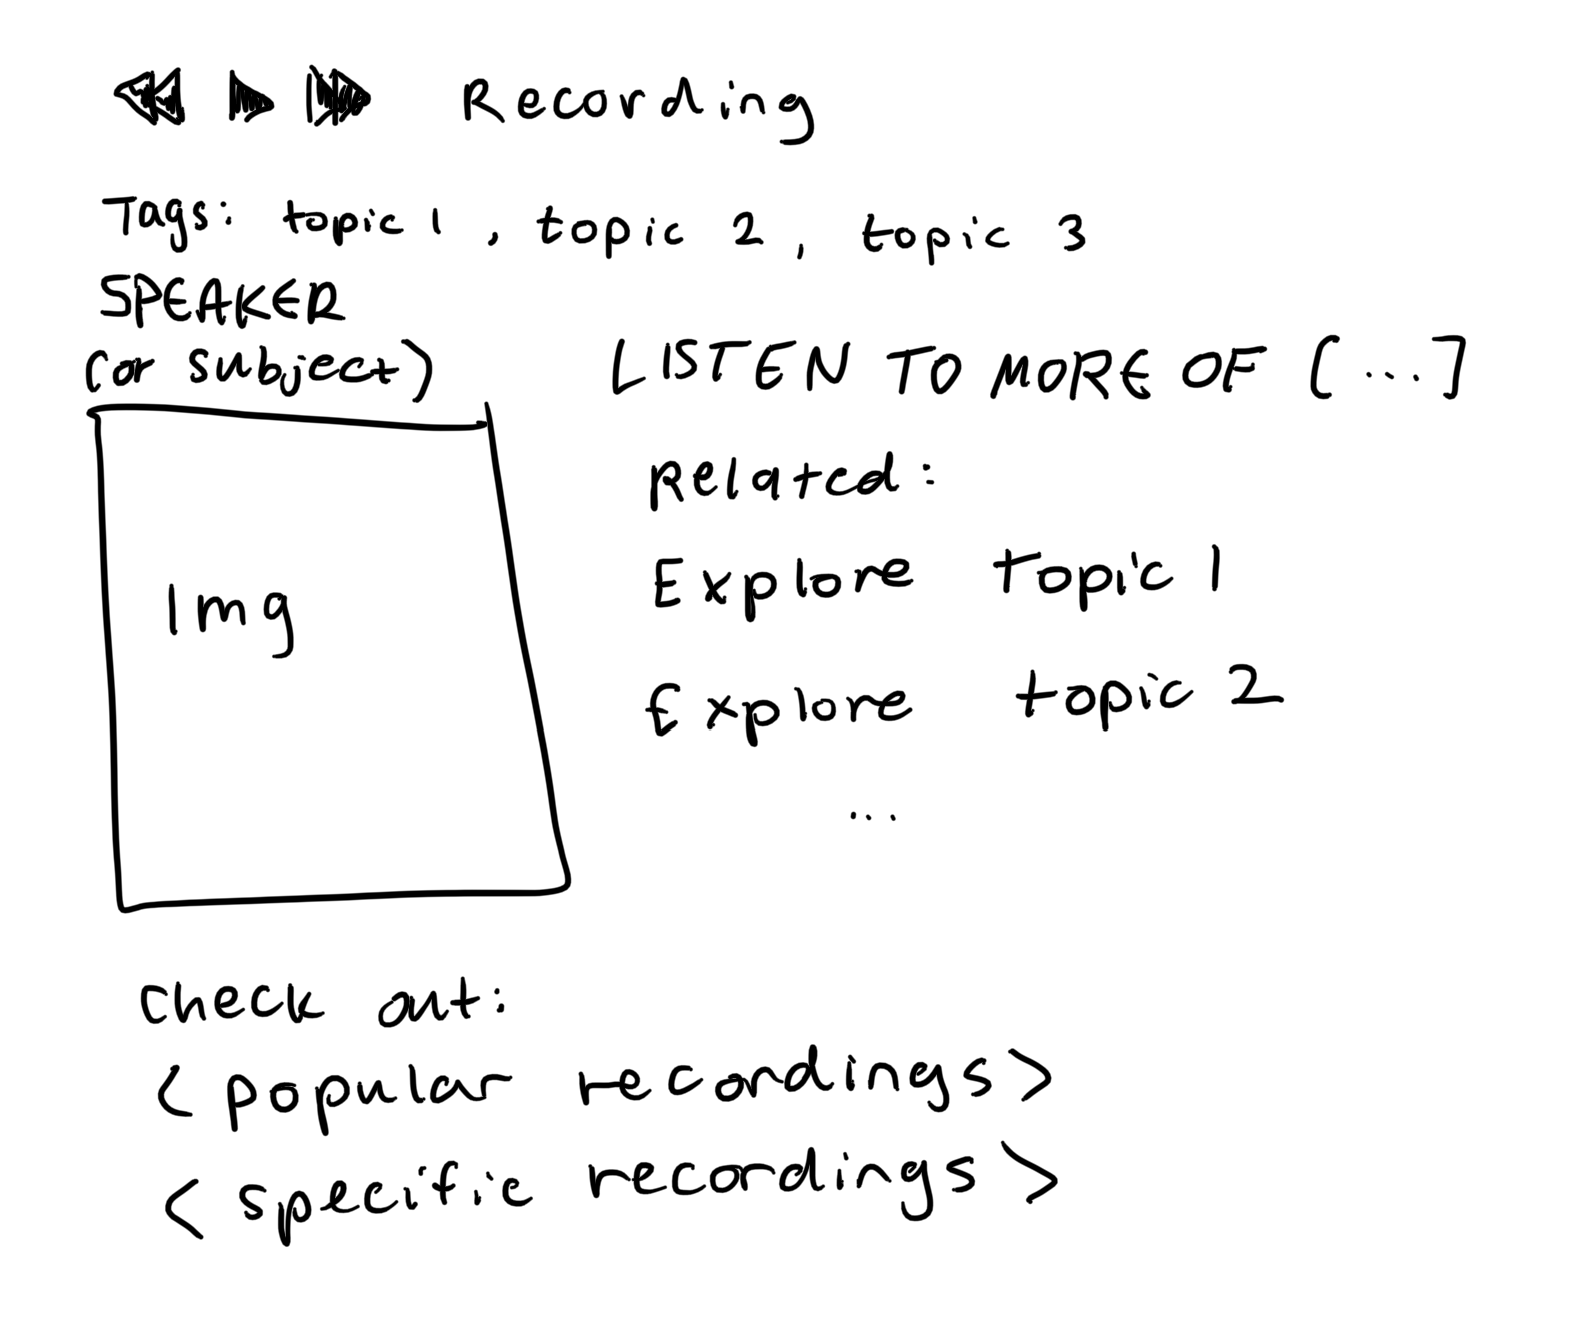 Recording
Tags: topic 1, topic 2, topic 3
SPEAKER
(or subject)
LISTEN TO MORE OF [...]
Related:
Explore topic 1
Explore topic 2
...
Img
Check out:
<popular recordings>
<specific recordings>